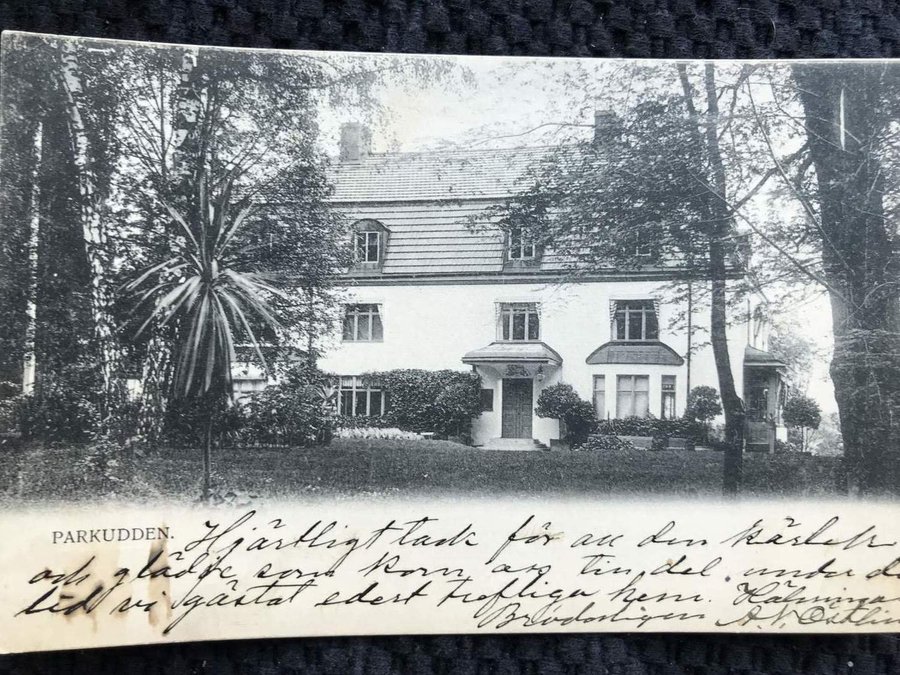 PARKUDDEN.
Hjärtligt tack för all den kärlek
och glädje som kom oss till del under de
tid vi gästat edert trefliga hem. Hälsningar
Broderligen A. V. Östlin